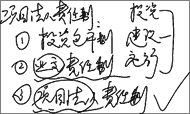 项目法人责任制
① 投资包干制
② 业主责任制
③ 项目法人责任制
投资
建设
运行